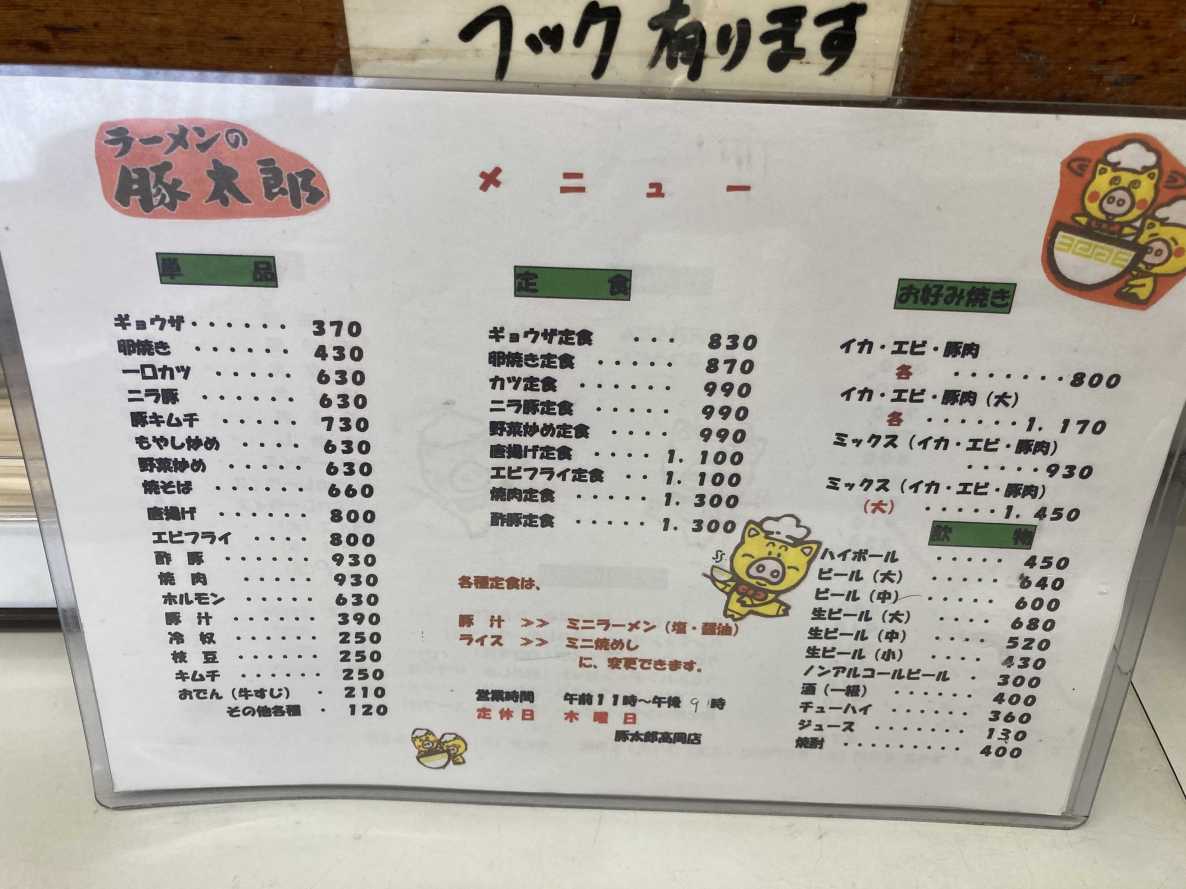 フック有ります
ラーメンの
豚太郎
メニュー
単品
ギョウザ・・・・・・ 370
卵焼き ・・・・・ 430
一口カツ ・・・・・ 630
ニラ豚 ・・・・・・ 630
豚キムチ ・・・・・ 730
もやし炒め ・・・・ 630
野菜炒め ・・・・・ 630
焼そば ・・・・・・ 660
唐揚げ ・・・・・・ 800
エビフライ ・・・・ 800
酢豚 ・・・・・ 930
焼肉 ・・・・・ 930
ホルモン ・・・・・ 630
豚汁 ・・・・・・ 390
冷奴 ・・・・・・ 250
枝豆 ・・・・・・ 250
キムチ ・・・・・・ 250
おでん（牛すじ） ・ 210
その他各種 ・ 120
定食
ギョウザ定食 ・・・ 830
卵焼き定食 ・・・・・ 870
カツ定食 ・・・・・ 990
ニラ豚定食 ・・・・・ 990
野菜炒め定食 ・・・・ 990
唐揚げ定食 ・・・・ 1.100
エビフライ定食 ・・ 1.100
焼肉定食 ・・・・・ 1.300
酢豚定食 ・・・・・ 1.300
各種定食は、
豚汁 >> ミニラーメン（塩・醤油）
ライス >> ミニ焼めし
に、変更できます．
営業時間 午前11時～午後9時
定休日 木曜日
豚太郎高岡店
お好み焼き
イカ・エビ・豚肉
各 ・・・・・・・800
イカ・エビ・豚肉（大）
各 ・・・・・・1．170
ミックス（イカ・エビ・豚肉）
・・・・・930
ミックス（イカ・エビ・豚肉）
（大） ・・・・・1．450
飲物
ハイボール ・・・・・ 450
ビール（大） ・・・・・ 640
ビール（中） ・・・・・ 600
生ビール（大） ・・・・ 680
生ビール（中） ・・・・ 520
生ビール（小） ・・・・ 430
ノンアルコールビール ・ 300
酒（一級） ・・・・・・ 400
チューハイ ・・・・・・ 360
ジュース ・・・・・・・ 130
焼酎 ・・・・・・・・・ 400